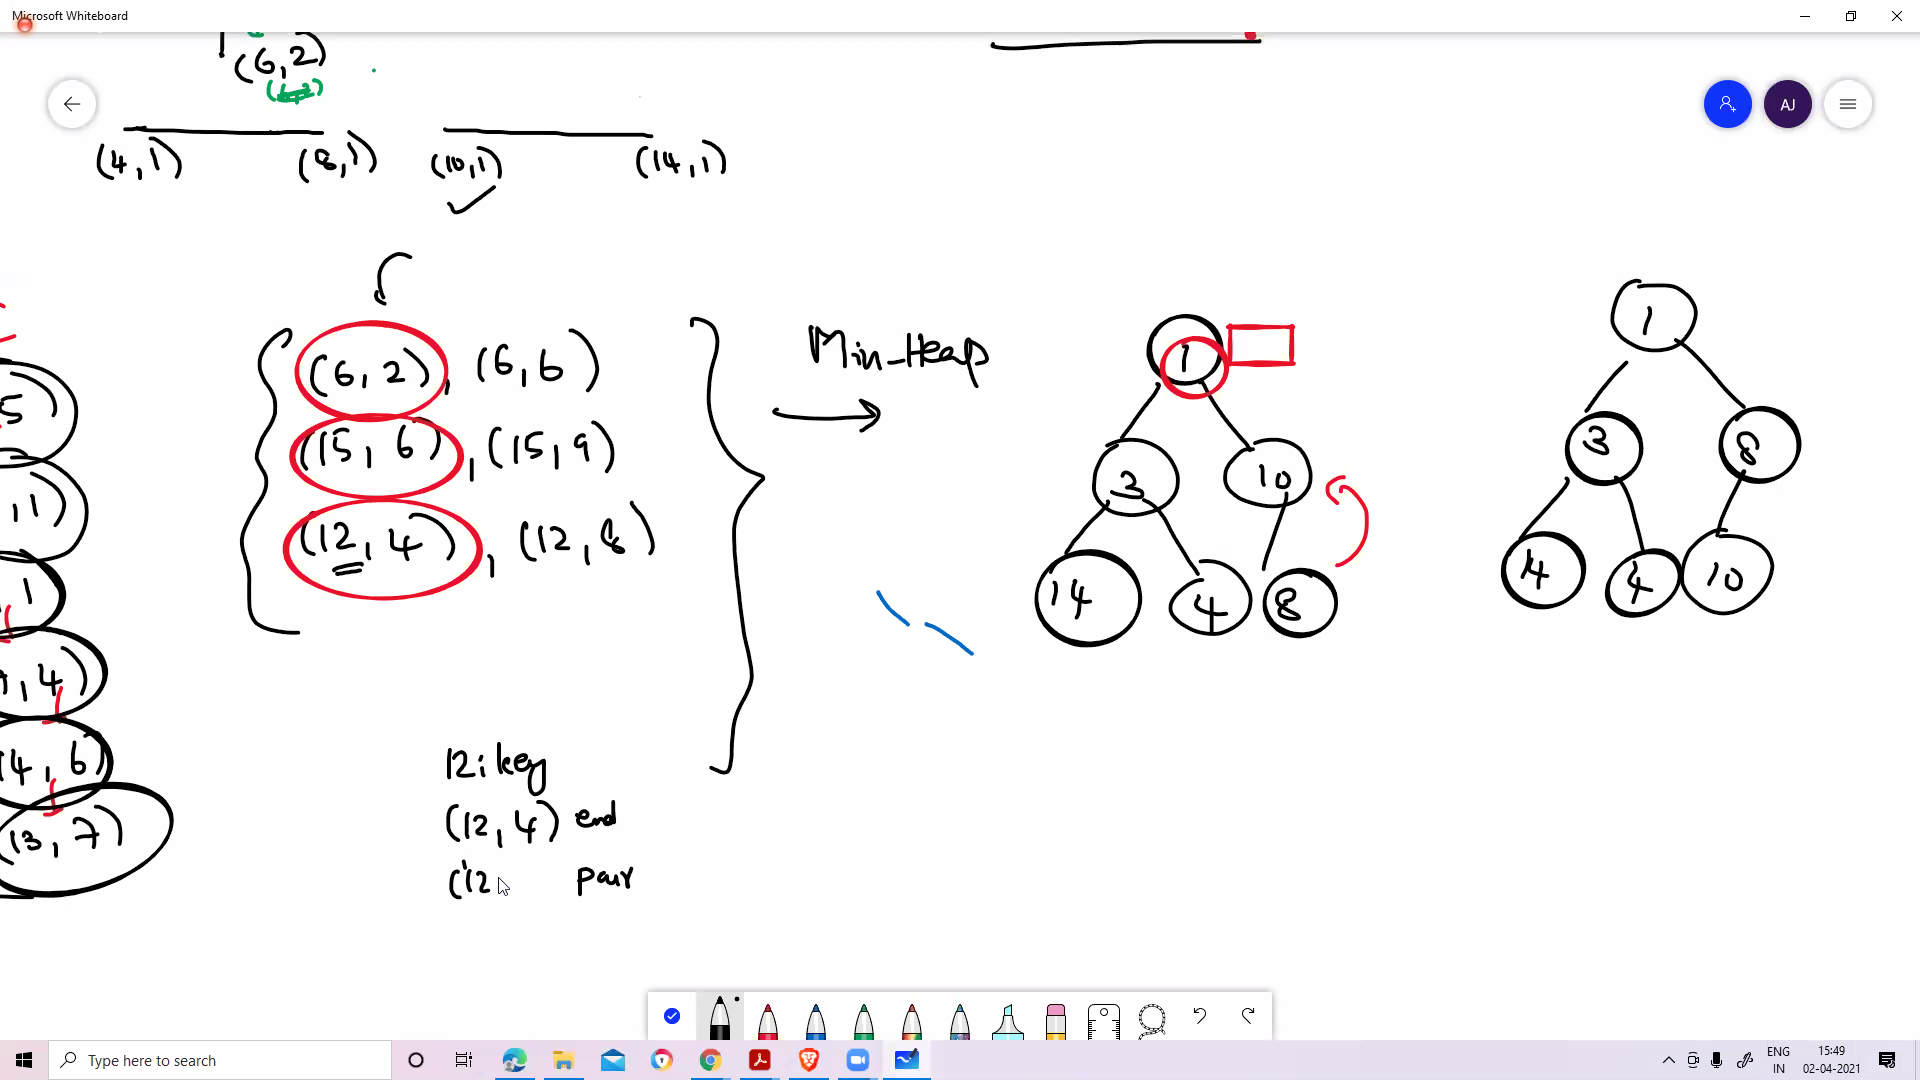 Microsoft Whiteboard
(6,2)
(4,1) (8,1) (10,1) (14,1)
AJ
(6,2), (6,6)
(15,6), (15,9)
(12,4), (12,8)
Min-Heap
1
3 10
14 4 8
1
3 8
14 4 10
5)
,1)
,1
,4)
(4,6)
(13,7)
12: key
(12,4) end
(12 pair
Type here to search
ENG
IN
15:49
02-04-2021